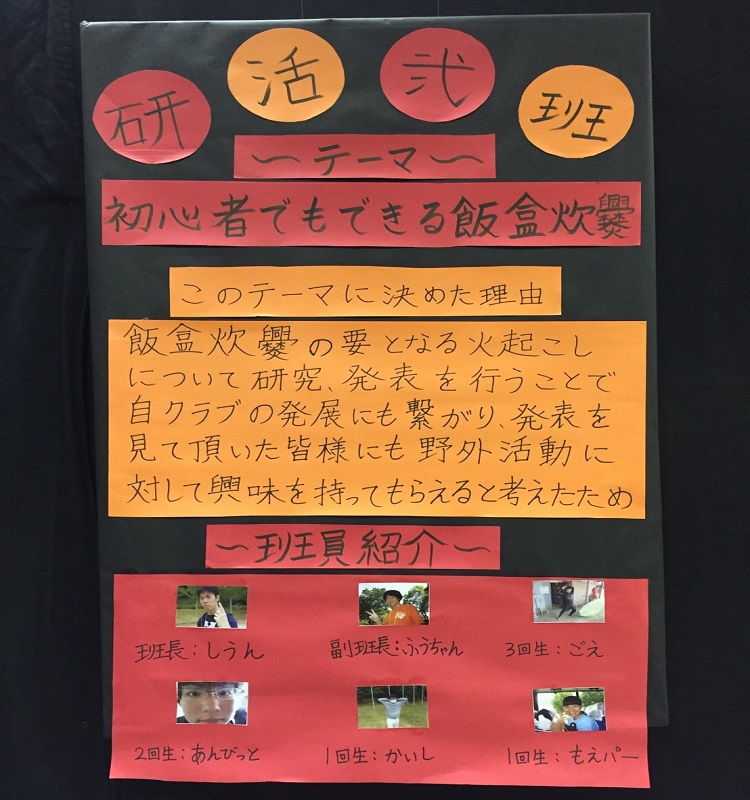 研活弐班
～テーマ～
初心者でもできる飯盒炊爨
このテーマに決めた理由
飯盒炊爨の要となる火起こし
について研究、発表を行うことで
自クラブの発展にも繋がり、発表を
見て頂いた皆様にも野外活動に
対して興味を持ってもらえると考えたため
～班員紹介～
班長:しうん 副班長:ふうちゃん 3回生:ごえ
2回生:あんびっと 1回生:かいし 1回生:もえパー